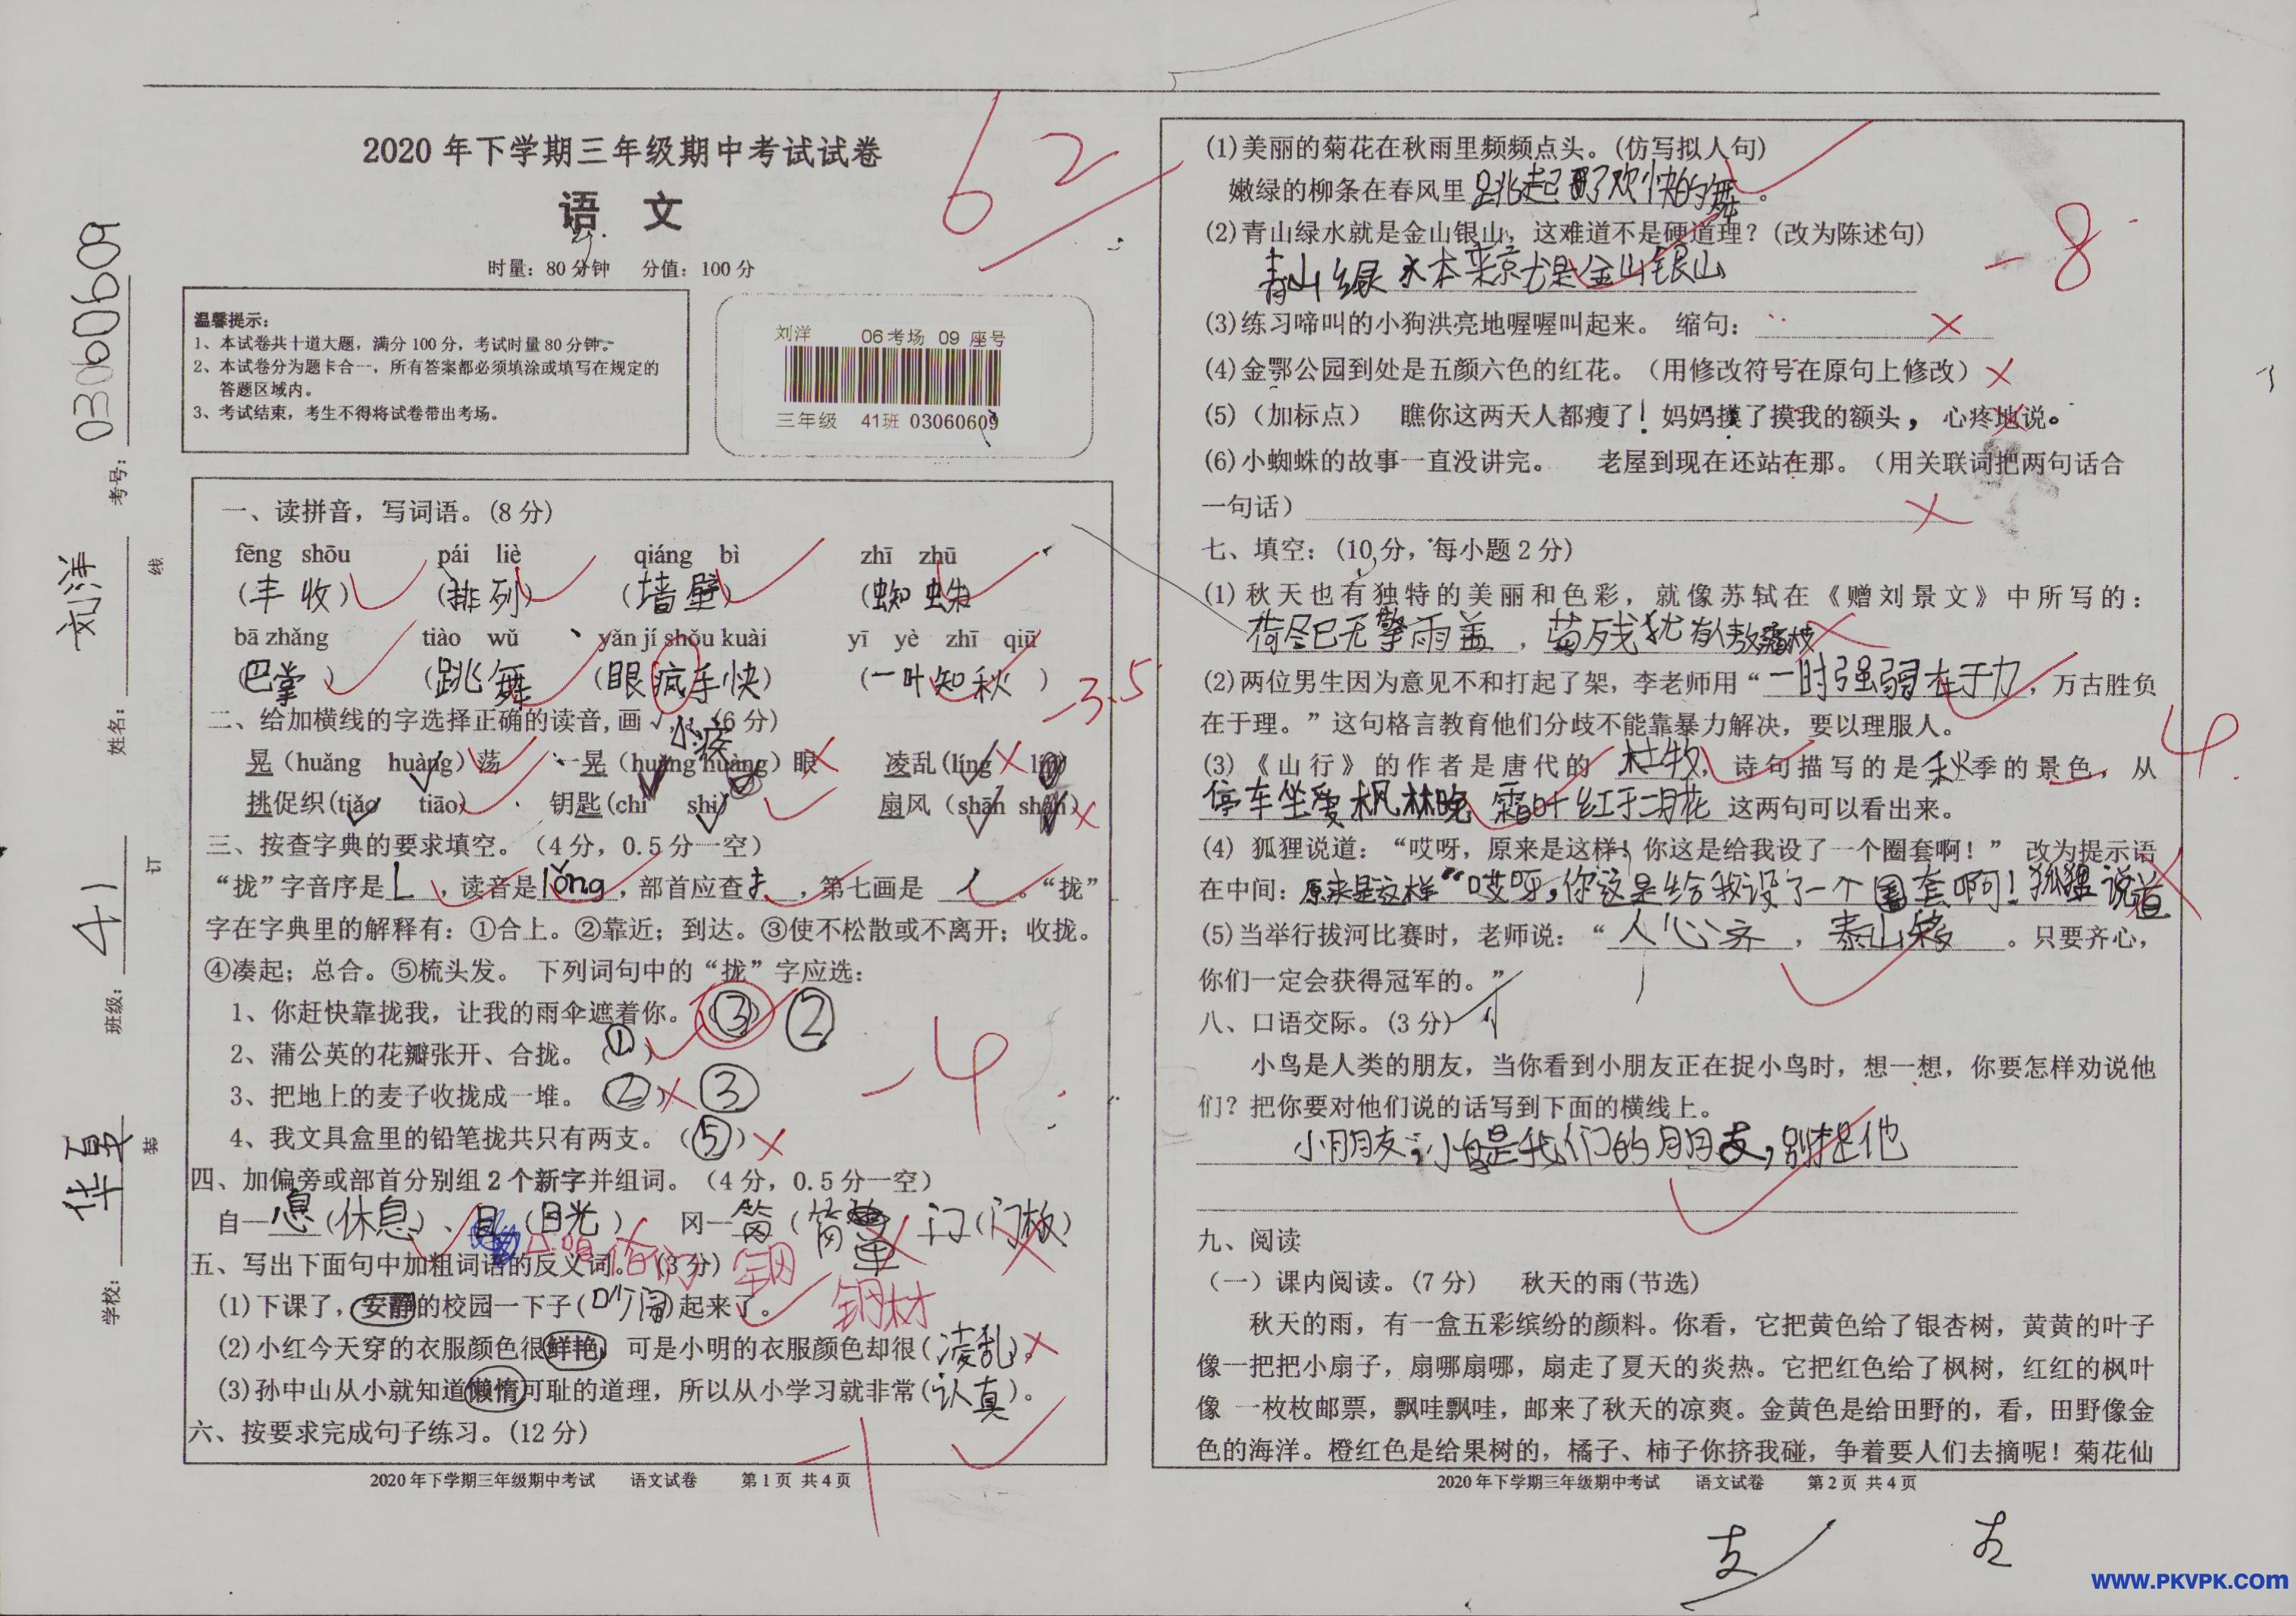 2020年下学期三年级期中考试试卷
语 文
时量：80分钟 分值：100分
62
温馨提示：
1、本试卷共十道大题，满分100分，考试时量80分钟。
2、本试卷分为题卡合一，所有答案都必须填涂或填写在规定的
答题区域内。
3、考试结束，考生不得将试卷带出考场。
刘洋 06考场 09 座号
三年级 41班 03060609
考号：03060609
姓名：刘洋
班级：41
学校：华夏
线
订
装
一、读拼音，写词语。(8分)
fēng shōu pái liè qiáng bì zhī zhū
(丰收) (排列) (墙壁) (蜘蛛)
bā zhǎng tiào wǔ yǎn jí shǒu kuài yī yè zhī qiū
(巴掌) (跳舞) (眼疯手快) (一叶知秋)
-3.5
二、给加横线的字选择正确的读音,画√。(6分)
晃（huǎng huàng）荡 一晃（huǎng huàng）眼 凌乱(líng
挑促织(tiǎo tiāo) 钥匙(chí shi) 扇风（shān shàn）
三、按查字典的要求填空。（4分，0.5分一空）
“拢”字音序是L，读音是lǒng，部首应查扌，第七画是 。“拢”
字在字典里的解释有：①合上。②靠近；到达。③使不松散或不离开；收拢。
④凑起；总合。⑤梳头发。 下列词句中的“拢”字应选：
1、你赶快靠拢我，让我的雨伞遮着你。(③) ②
2、蒲公英的花瓣张开、合拢。(①)
3、把地上的麦子收拢成一堆。(②) ③
4、我文具盒里的铅笔拢共只有两支。(⑤)
-4
四、加偏旁或部首分别组2个新字并组词。（4分，0.5分一空）
自—息(休息)、目(目光) 冈— 门(门板)
咱 咱们 钢 钢材
五、写出下面句中加粗词语的反义词。(3分)
(1)下课了，安静的校园一下子(吵闹)起来了。
(2)小红今天穿的衣服颜色很鲜艳，可是小明的衣服颜色却很(凌乱)。
(3)孙中山从小就知道懒惰可耻的道理，所以从小学习就非常(认真)。
-1
六、按要求完成句子练习。(12分)
2020年下学期三年级期中考试 语文试卷 第1页 共4页
(1)美丽的菊花在秋雨里频频点头。(仿写拟人句)
嫩绿的柳条在春风里跳起了欢快的舞。
(2)青山绿水就是金山银山，这难道不是硬道理？(改为陈述句)
青山绿水本来就是金山银山
-8
(3)练习啼叫的小狗洪亮地喔喔叫起来。 缩句：
(4)金鄂公园到处是五颜六色的红花。（用修改符号在原句上修改）
(5)（加标点） 瞧你这两天人都瘦了！妈妈摸了摸我的额头，心疼地说。
(6)小蜘蛛的故事一直没讲完。 老屋到现在还站在那。（用关联词把两句话合
一句话）
七、填空：(10分，每小题2分)
(1)秋天也有独特的美丽和色彩，就像苏轼在《赠刘景文》中所写的：
荷尽已无擎雨盖，菊残犹有傲霜枝
(2)两位男生因为意见不和打起了架，李老师用“一时强弱在于力，万古胜负
在于理。”这句格言教育他们分歧不能靠暴力解决，要以理服人。
(3)《山行》的作者是唐代的杜牧，诗句描写的是秋季的景色，从
停车坐爱枫林晚 霜叶红于二月花 这两句可以看出来。
4
(4) 狐狸说道：“哎呀，原来是这样！你这是给我设了一个圈套啊！” 改为提示语
在中间：原来是这样“哎呀，你这是给我设了一个圈套啊！狐狸说道
(5)当举行拔河比赛时，老师说：“人心齐，泰山移。只要齐心，
你们一定会获得冠军的。”
八、口语交际。(3分)
小鸟是人类的朋友，当你看到小朋友正在捉小鸟时，想一想，你要怎样劝说他
们？把你要对他们说的话写到下面的横线上。
小朋友；小鸟是我们的朋友，别捉他
九、阅读
（一）课内阅读。(7分) 秋天的雨(节选)
秋天的雨，有一盒五彩缤纷的颜料。你看，它把黄色给了银杏树，黄黄的叶子
像一把把小扇子，扇哪扇哪，扇走了夏天的炎热。它把红色给了枫树，红红的枫叶
像 一枚枚邮票，飘哇飘哇，邮来了秋天的凉爽。金黄色是给田野的，看，田野像金
色的海洋。橙红色是给果树的，橘子、柿子你挤我碰，争着要人们去摘呢！菊花仙
2020年下学期三年级期中考试 语文试卷 第2页 共4页
www.PKVPK.com